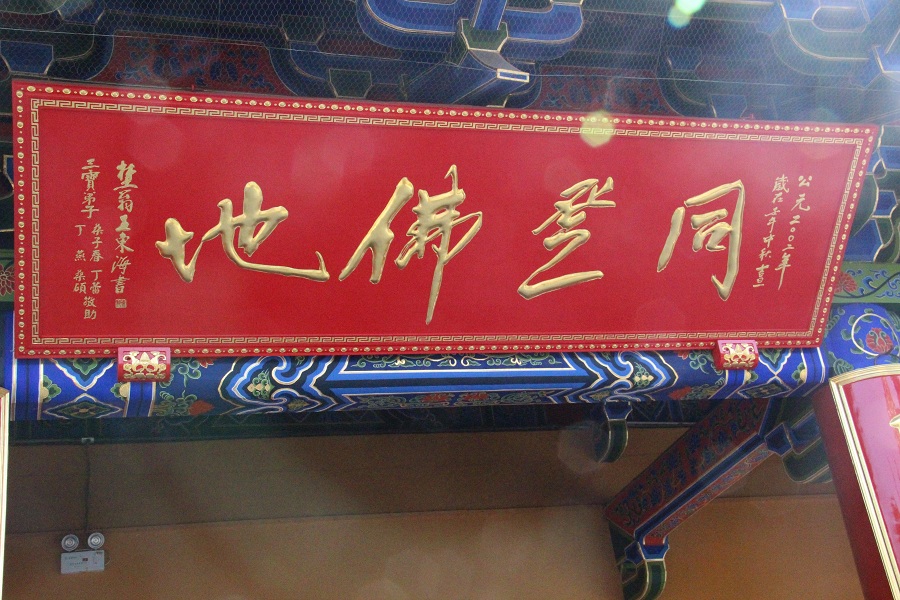 同登佛地
公元二〇〇二年
歲在壬午中秋書
王東海書
三寶弟子
桑子春 丁蕾
丁燕 桑碩 敬助